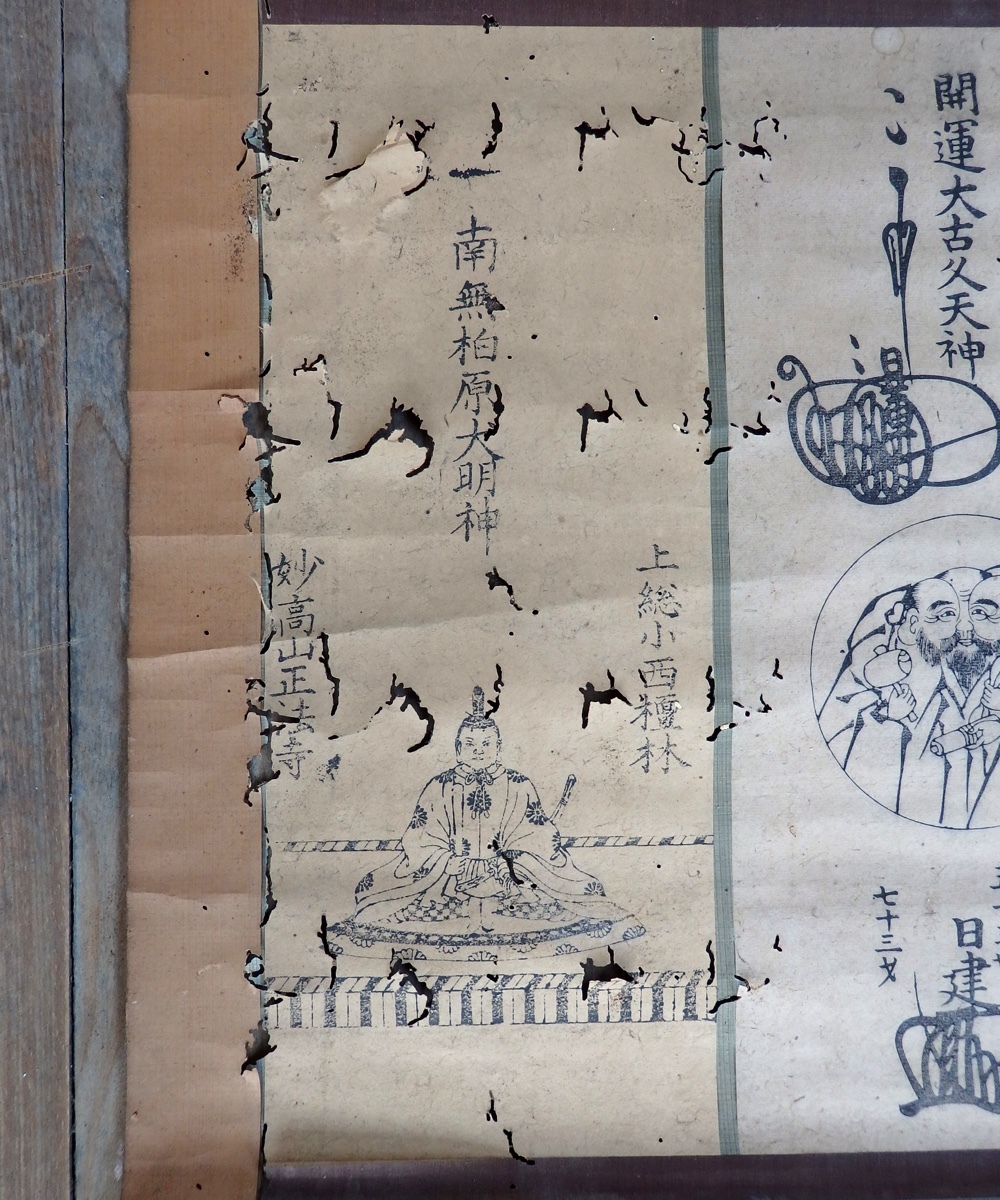 開運大古久天神
七十三才
日建
上総小西檀林
南無柏原大明神
妙高山正法寺